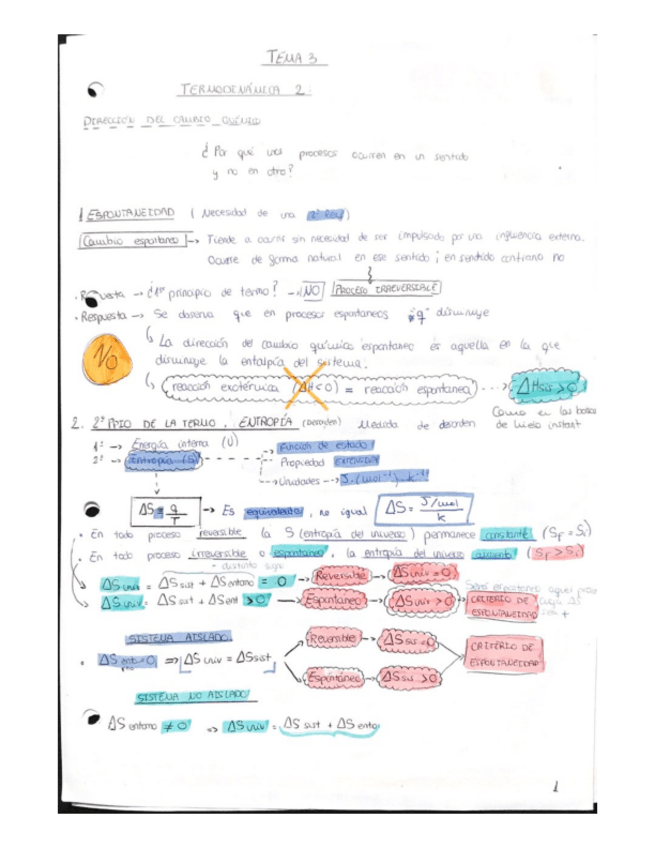 TEMA 3
TERMODINÁMICA 2.
DIRECCIÓN DEL CAMBIO QUÍMICO
¿Por qué unos procesos ocurren en un sentido
y no en otro?
1 ESPONTANEIDAD (Necesidad de una 2ª ley)
Cambio espontaneo → Tiende a ocurrir sin necesidad de ser impulsado por una influencia externa.
Ocurre de forma natural en ese sentido; en sentido contrario no
PROCESO IRREVERSIBLE
→ ¿1er principio de termo? → NO
· Respuesta → Se observa que en procesos espontaneos "q" disminuye
NO
La dirección del cambio químico espontaneo es aquella en la que
disminuye la entalpía del sistema.
reacción exotérmica (ΔH<0) = reacción espontanea ---→ ΔHsis > 0
Como en las bolsas
de hielo instant
2. 2º PPIO DE LA TERMO. ENTROPÍA (Desorden) Medida de desorden
1º → Energía interna (U)
2º → Entropía (S)
→ Función de estado
→ Propiedad EXTENSIVA
→ Unidades → J·(mol⁻¹)·K⁻¹
ΔS = q/T → Es equivalente, no igual ΔS = J/mol / K
· En todo proceso reversible la S (entropía del universo) permanece constante (Sf = Si)
· En todo proceso irreversible o espontaneo, la entropía del universo aumenta (Sf > Si)
ΔS univ = ΔS sist + ΔS entorno = 0 → Reversible → ΔS univ = 0
ΔS univ = ΔS sist + ΔS ent > 0 → Espontaneo → ΔS univ > 0 → CRITERIO DE
ESPONTANEIDAD
SISTEMA AISLADO
· ΔS ento = 0 ⇒ ΔS univ = ΔS sist
Reversible → ΔS sis = 0
Espontáneo → ΔS sis > 0
CRITERIO DE
ESPONTANEIDAD
SISTEMA NO AISLADO
ΔS entorno ≠ 0 ⇒ ΔS univ = ΔS sist + ΔS ento
1